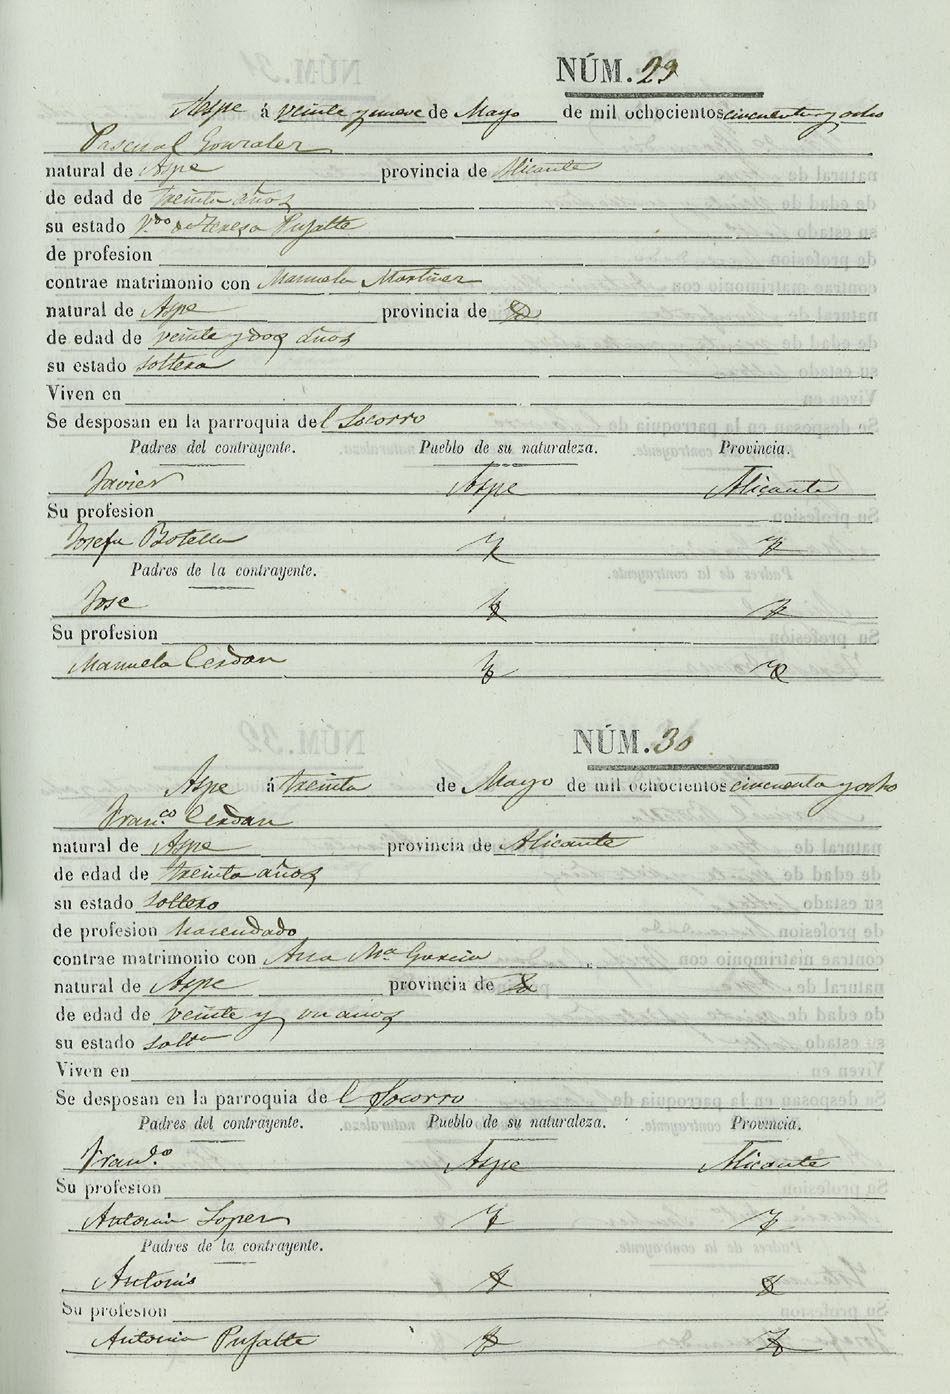 NÚM. 29
Aspe á veinte y nueve de Mayo de mil ochocientos cincuenta y ocho
Pascual Gonzalez
natural de Aspe provincia de Alicante
de edad de treinta años
su estado V.do de Teresa Pujalte
de profesion
contrae matrimonio con Manuela Martinez
natural de Aspe provincia de
de edad de veinte y dos años
su estado soltera
Viven en
Se desposan en la parroquia del Socorro
Padres del contrayente. Pueblo de su naturaleza. Provincia.
Javier Aspe Alicante
Su profesion
Josefa Botella
Padres de la contrayente.
Jose
Su profesion
Manuela Cerdan
NÚM. 30
Aspe á treinta de Mayo de mil ochocientos cincuenta y ocho
Fran.co Cerdan
natural de Aspe provincia de Alicante
de edad de treinta años
su estado soltero
de profesion hacendado
contrae matrimonio con Ana Ma Garcia
natural de Aspe provincia de
de edad de veinte y un años
su estado solta
Viven en
Se desposan en la parroquia de l Socorro
Padres del contrayente. Pueblo de su naturaleza. Provincia.
Fran.co Aspe Alicante
Su profesion
Antonia Lopez
Padres de la contrayente.
Antonio
Su profesion
Antonia Pujalte